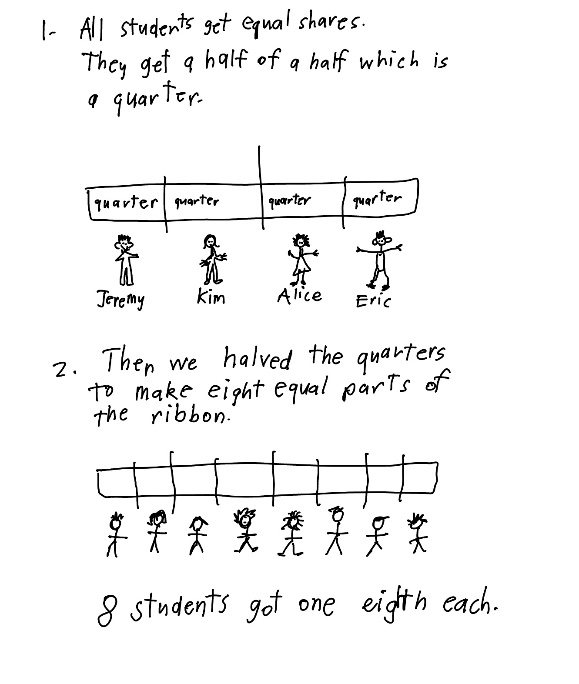 1- All students get equal shares.
They get a half of a half which is
a quarter.
quarter quarter quarter quarter
Jeremy Kim Alice Eric
2. Then we halved the quarters
to make eight equal parts of
the ribbon.
8 students got one eighth each.